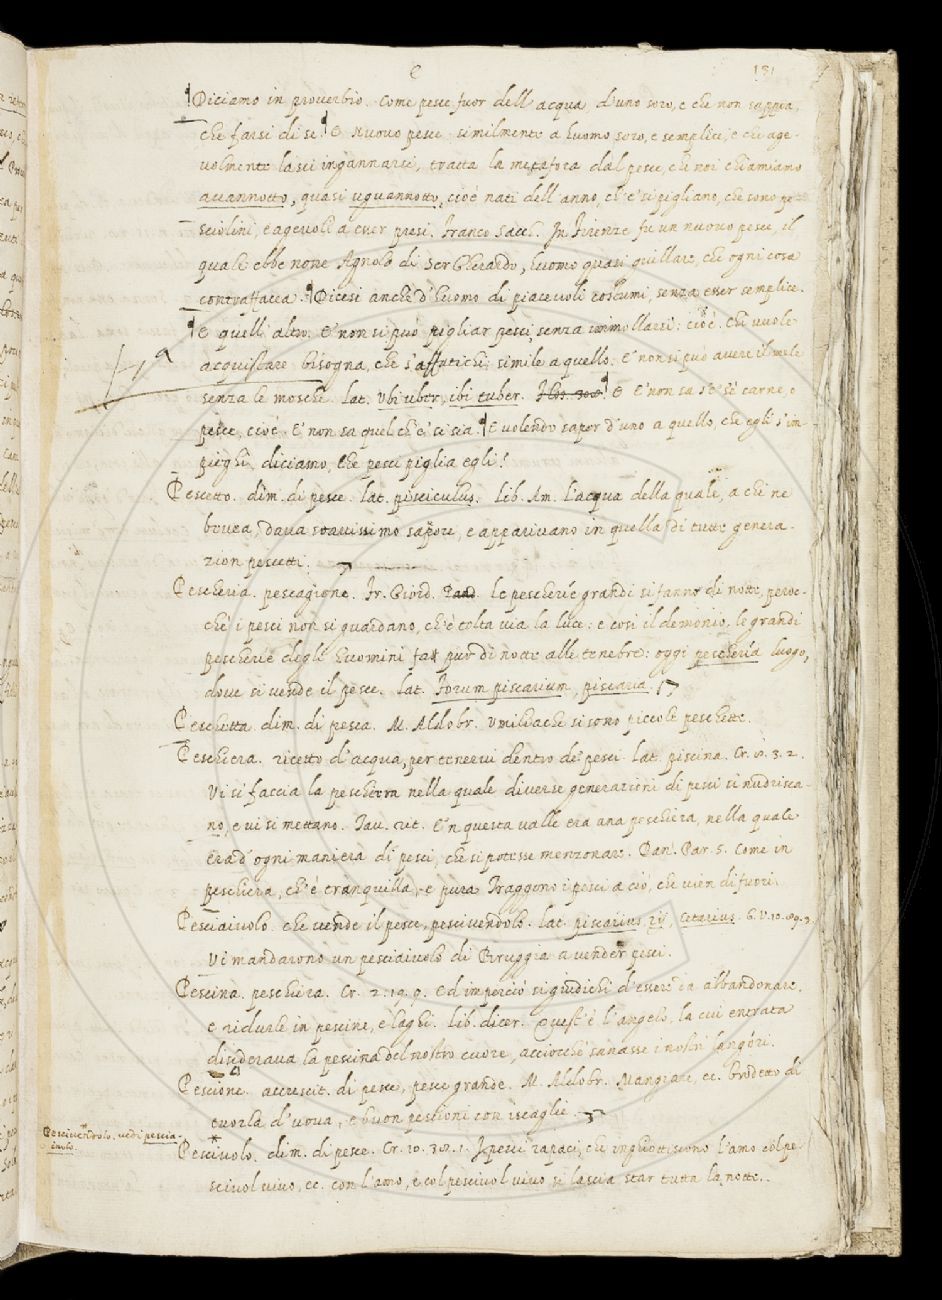 151
¶Diciamo in proverbio. Come pesce fuor dell'acqua, d'uno soro, e che non sappia,
che farsi di se. ¶E Nuovo pesce, similmente a huomo soro, e semplice, e che age-
volmente lasci ingannarsi, tratta la metafora dal pesce, che noi chiamiamo
avannotto, quasi uguannotto, cioè nati dell'anno, ch'e' si pigliano, che sono pe-
sciolini, e agevoli a esser presi. Franco Sacch. In Firenze fu un nuovo pesce, il
quale ebbe nome Agnolo di Ser Gherardo, huomo quasi giullare, che ogni cosa
contraffacea. ¶Dicesi anche d'huomo di piacevoli costumi, senza esser semplice.
¶E quell'altro. E' non si può pigliar pesci, senza immollarsi: cioè. chi vuole
acquistare bisogna, che s'affatichi: simile a quello. E' non si può avere il mele
senza le mosche. lat. Ubi uber, ibi tuber. ¶E E' non sa s'e' s'è carne, o
pesce, cioè. E' non sa quel ch'e' si sia. ¶E volendo saper d'uno a quello, che egli s'im-
pieghi, diciamo, Che pesci piglia egli?
Pescetto. dim. di pesce. lat. pisciculus. Lib. Am. L'acqua della quale, a chi ne
bevea, dava soavissimo sapore, e apparivano in quella di tutte genera-
zion pescetti.
Pescheria. pescagione. Fr. Giord. le pescherie grandi si fanno di notte, peroc-
chè i pesci non si guardano, ch'è tolta via la luce: e così il demonio, le grandi
pescherie degli huomini fa pur di notte alle tenebre: oggi pescheria luogo,
dove si vende il pesce. lat. Forum piscarium, piscaria.
Peschetta. dim. di pesca. M. Aldobr. Umiliache si sono piccole peschette.
Peschiera. ricetto d'acqua, per tenervi dentro de' pesci. lat. piscina. Cr. 10. 3. 2.
Vi si faccia la peschiera nella quale diverse generazioni di pesci si nudrisca-
no, e vi si mettano. Tav. rit. E 'n questa valle era una peschiera, nella quale
era d'ogni maniera di pesci, che si potesse menzonare. Dan. Par. 5. Come in
peschiera, ch'è tranquilla, e pura Traggono i pesci a ciò, che vien di fuori.
Pesciaivolo. che vende il pesce, pescivendolo. lat. piscarius rij, Cetarius. G. V. 10. 89. 3.
Vi mandarono un pesciaivolo di Peruggia a vender pesci.
Pescina. peschiera. Cr. 2. 19. 9. Ed imperciò si giudichi d'essere in abbandonare,
e ridurle in pescine, e laghi. Lib. dicer. Quest'è l'angelo, la cui entrata
disiderava la pescina del nostro cuore, acciocchè sanasse i nostri langóri.
Pescione. accrescit. di pesce, pesce grande. M. Aldobr. Mangiare, ec. brodetto di
tuorla d'uova, e buon pescioni con iscaglie.
Pescivendolo. vedi pescia-
ivolo.
Pescivolo. dim. di pesce. Cr. 10. 38. 1. I pesci rapaci, che inghiottiscono l'amo col pe-
scivol vivo, ec. con l'amo, e col pescivol vivo, si lascia star tutta la notte.